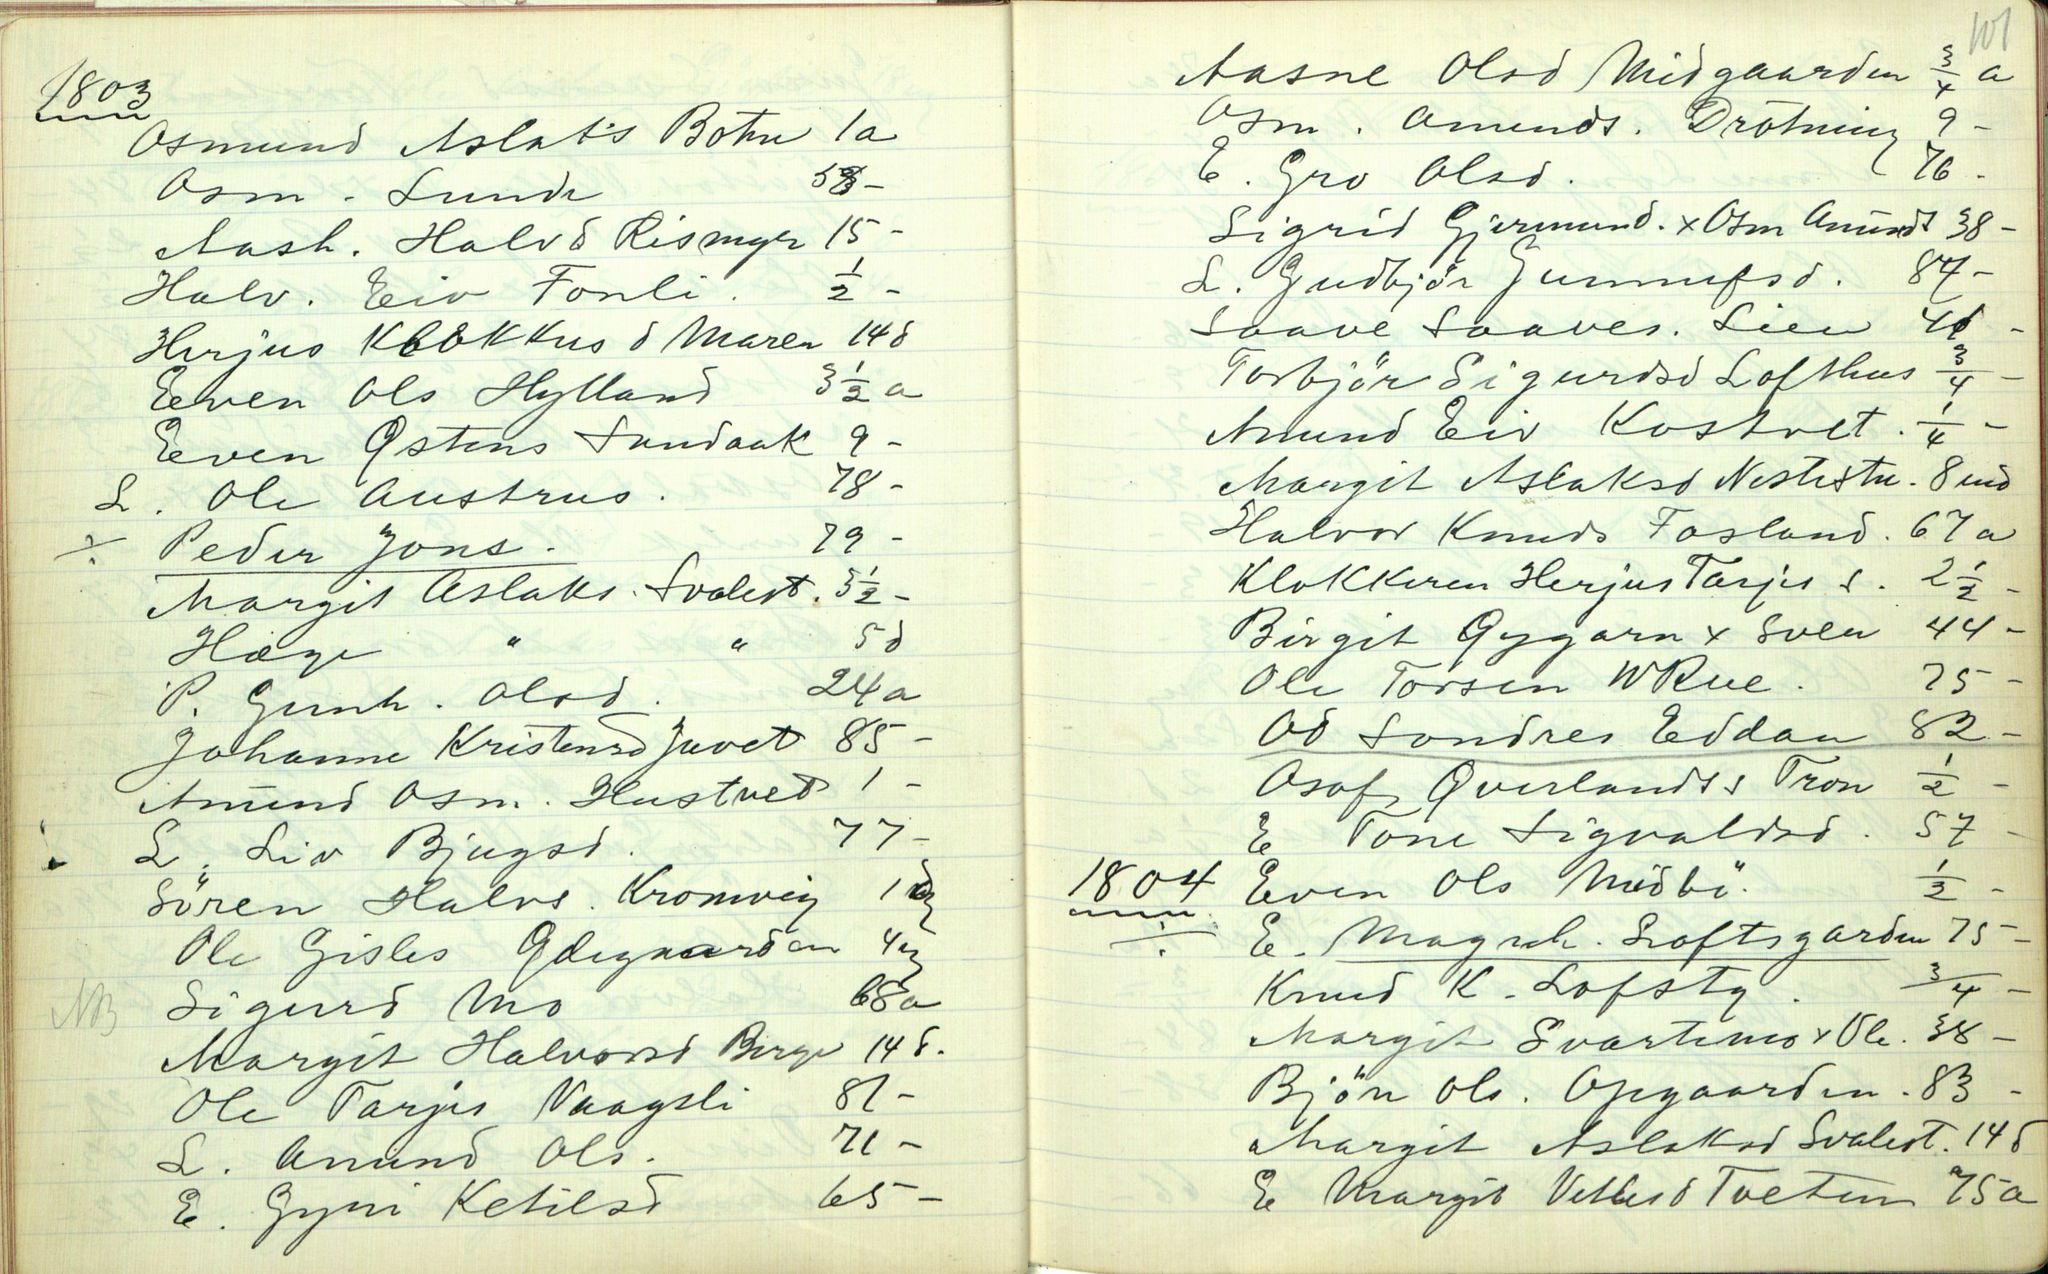 1803
Osmund Aslaks Botn 1a
Osm. Lunde 58-
Aash. Halvd Rismyr 15-
Halv. Eiv Fonli. 1/2 -
Herjus Klokkus d Maren 14d
Even Ols Hylland 3 1/2 a
Even Østens Sundaak 9 -
L. Ole Austrus. 78 -
÷ Peder Jons. 79 -
Margit Aslaks. Svalest. 3 1/2 -
Hæge " " 5d
P. Gunh. Olsd. 24a
Johanne Kristensd Juvet 85 -
Amund Osm. Hustvet 1 -
L. Liv Bjugsd. 77 -
Sören Halvs. Kromvig 1
Ole Gisles Ødegaarden 4
NB Sigurd Mo 68a
Margit Halvorsd Berge 14d.
Ole Tarjes Vaagsli 81 -
L. Anund Ols. 71 -
E. Gyri Ketilsd 65 -
101
Aasne Olsd Midgaarden 3/4 a
Osm. Amunds. Drotning 9 -
E. Gro Olsd. 76 -
Sigrid Gjermund. x Osm Amunds 38 -
L. Gudbjör Gunnufsd. 87 -
Saave Saaves. Lien 41 -
Torbjör Sigurdsd Lofthus 3/4 -
Amund Eiv Kostvet. 1/4 -
Margit Aslaksd Nestestu. 8 md
Halvor Knuds Fosland. 67 a
Klokkeren Herjus Tarjes s. 2 1/2 -
Birgit Gygarn x Sven 44 -
Ole Torsen WRue. 75 -
Od Sondres Eddan 82 -
Osaf Øverlandss Tron 1/2 -
E Tone Sigvaldsd. 57 -
1804 Even Ols Midbö. 1/2 -
÷ E. Magnh. Loftsgarden 75 -
Knud K. Lofstg. 3/4 -
Margit Svartemo x Ole. 38 -
Bjön Ols. Opgaarden. 83 -
Margit Aslaksd Svalest. 14d
E Margit Vetlesd Tveten 75a